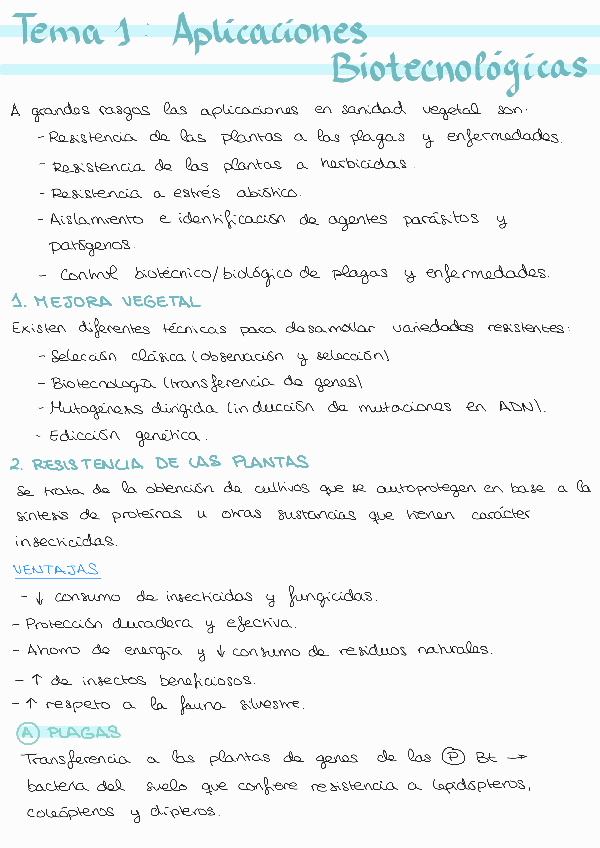 Tema 1: Aplicaciones
Biotecnológicas
A grandes rasgos las aplicaciones en sanidad vegetal son:
- Resistencia de las plantas a las plagas y enfermedades.
- Resistencia de las plantas a herbicidas.
- Resistencia a estrés abiótico.
- Aislamiento e identificación de agentes parásitos y
patógenos.
- Control biotécnico/biológico de plagas y enfermedades.
1. MEJORA VEGETAL
Existen diferentes técnicas para desarrollar variedades resistentes:
- Selección clásica (observación y selección)
- Biotecnología (transferencia de genes)
- Mutogénesis dirigida (inducción de mutaciones en ADN).
- Edicción genética.
2. RESISTENCIA DE LAS PLANTAS
Se trata de la obtención de cultivos que se autoprotegen en base a la
síntesis de proteínas u otras sustancias que tienen carácter
insecticidas.
VENTAJAS
- ↓ consumo de insecticidas y fungicidas.
- Protección duradera y efectiva.
- Ahorro de energía y ↓ consumo de residuos naturales.
- ↑ de insectos beneficiosos.
- ↑ respeto a la fauna silvestre.
A PLAGAS
Transferencia a las plantas de genes de las P Bt →
bacteria del suelo que confiere resistencia a lepidópteros,
coleópteros y dípteros.